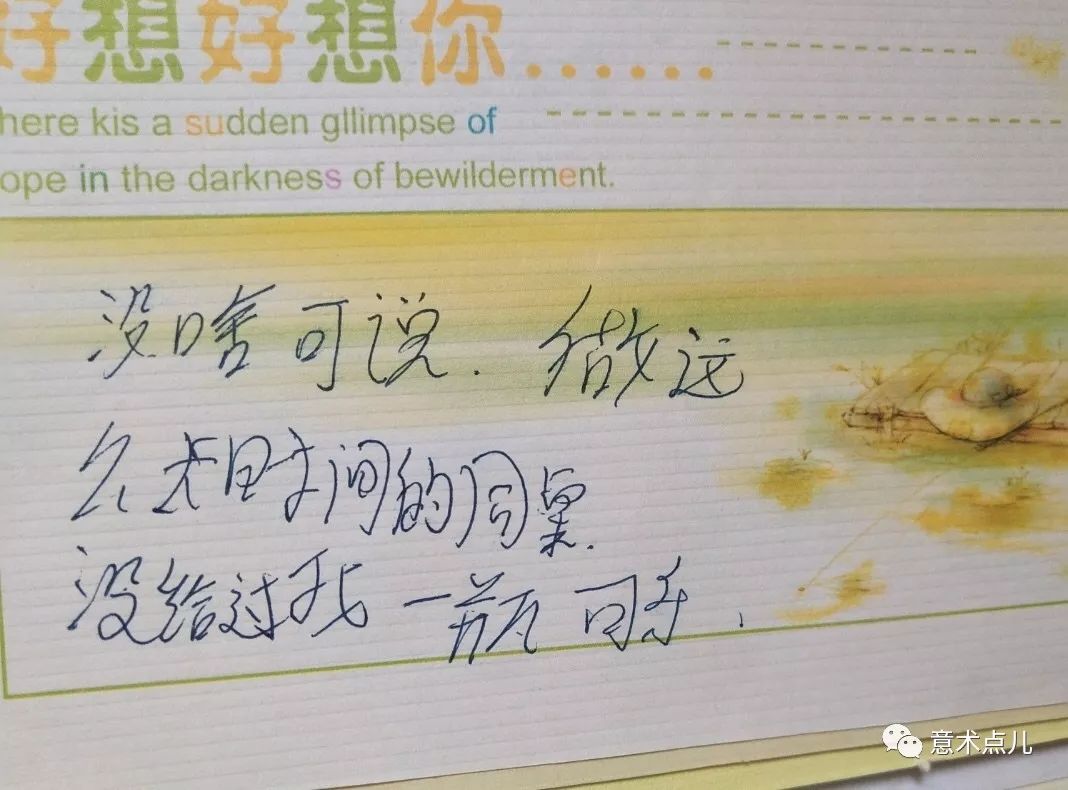 好想好想你......
here kis a sudden gllimpse of
ope in the darkness of bewilderment.
没啥可说.做这
么长时间的同桌.
没给过我一瓶可乐.
意术点儿